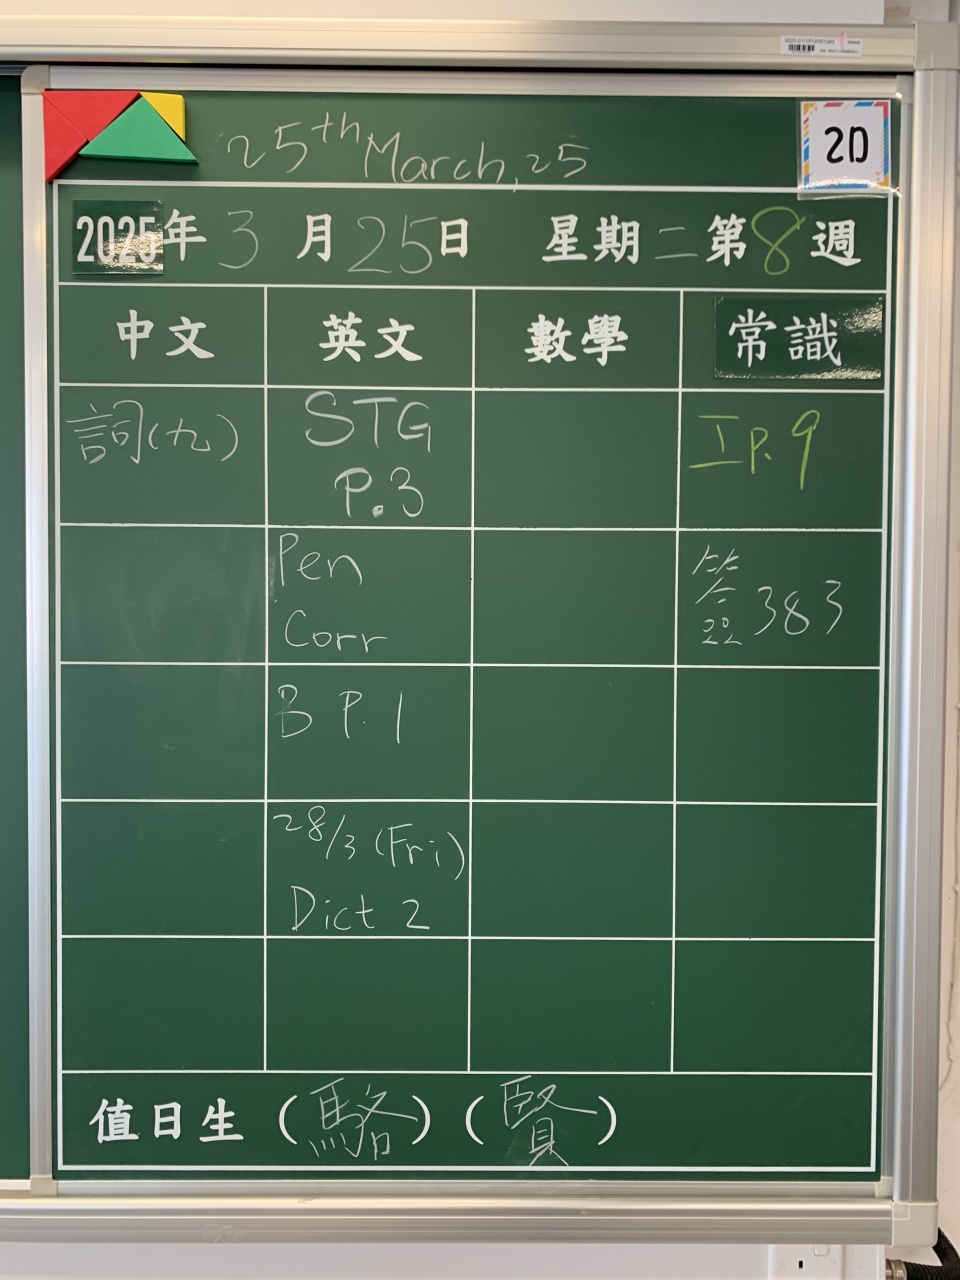 25th March, 25
2D
2025年3月25日 星期二 第8週
中文 英文 數學 常識
詞(九) STG P.3 工P.9
Pen Corr 簽383
B P.1
28/3 (Fri) Dict 2
值日生 (駱) (賢)